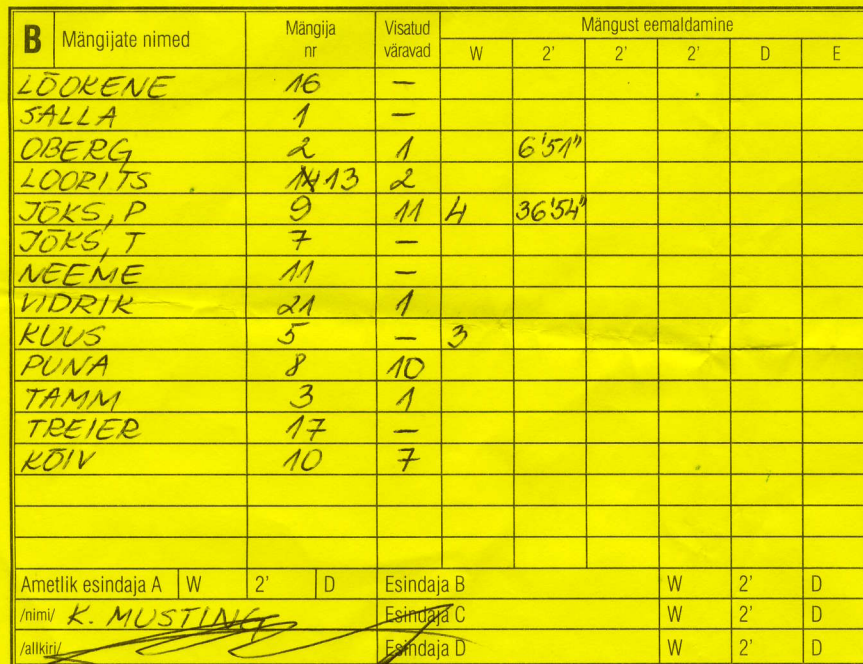 B Mängijate nimed Mängija nr Visatud väravad Mängust eemaldamine
W 2' 2' 2' D E
LÕOKENE 16 —
SALLA 1 —
OBERG 2 1 6'51"
LOORITS 13 2
JÕKS, P 9 11 4 36'54"
JÕKS, T 7 —
NEEME 11 —
VIDRIK 21 1
KUUS 5 — 3
PUNA 8 10
TAMM 3 1
TREIER 17 —
KÕIV 10 7
Ametlik esindaja A W 2' D Esindaja B W 2' D
/nimi/ K. MUSTING Esindaja C W 2' D
/allkiri/ Esindaja D W 2' D